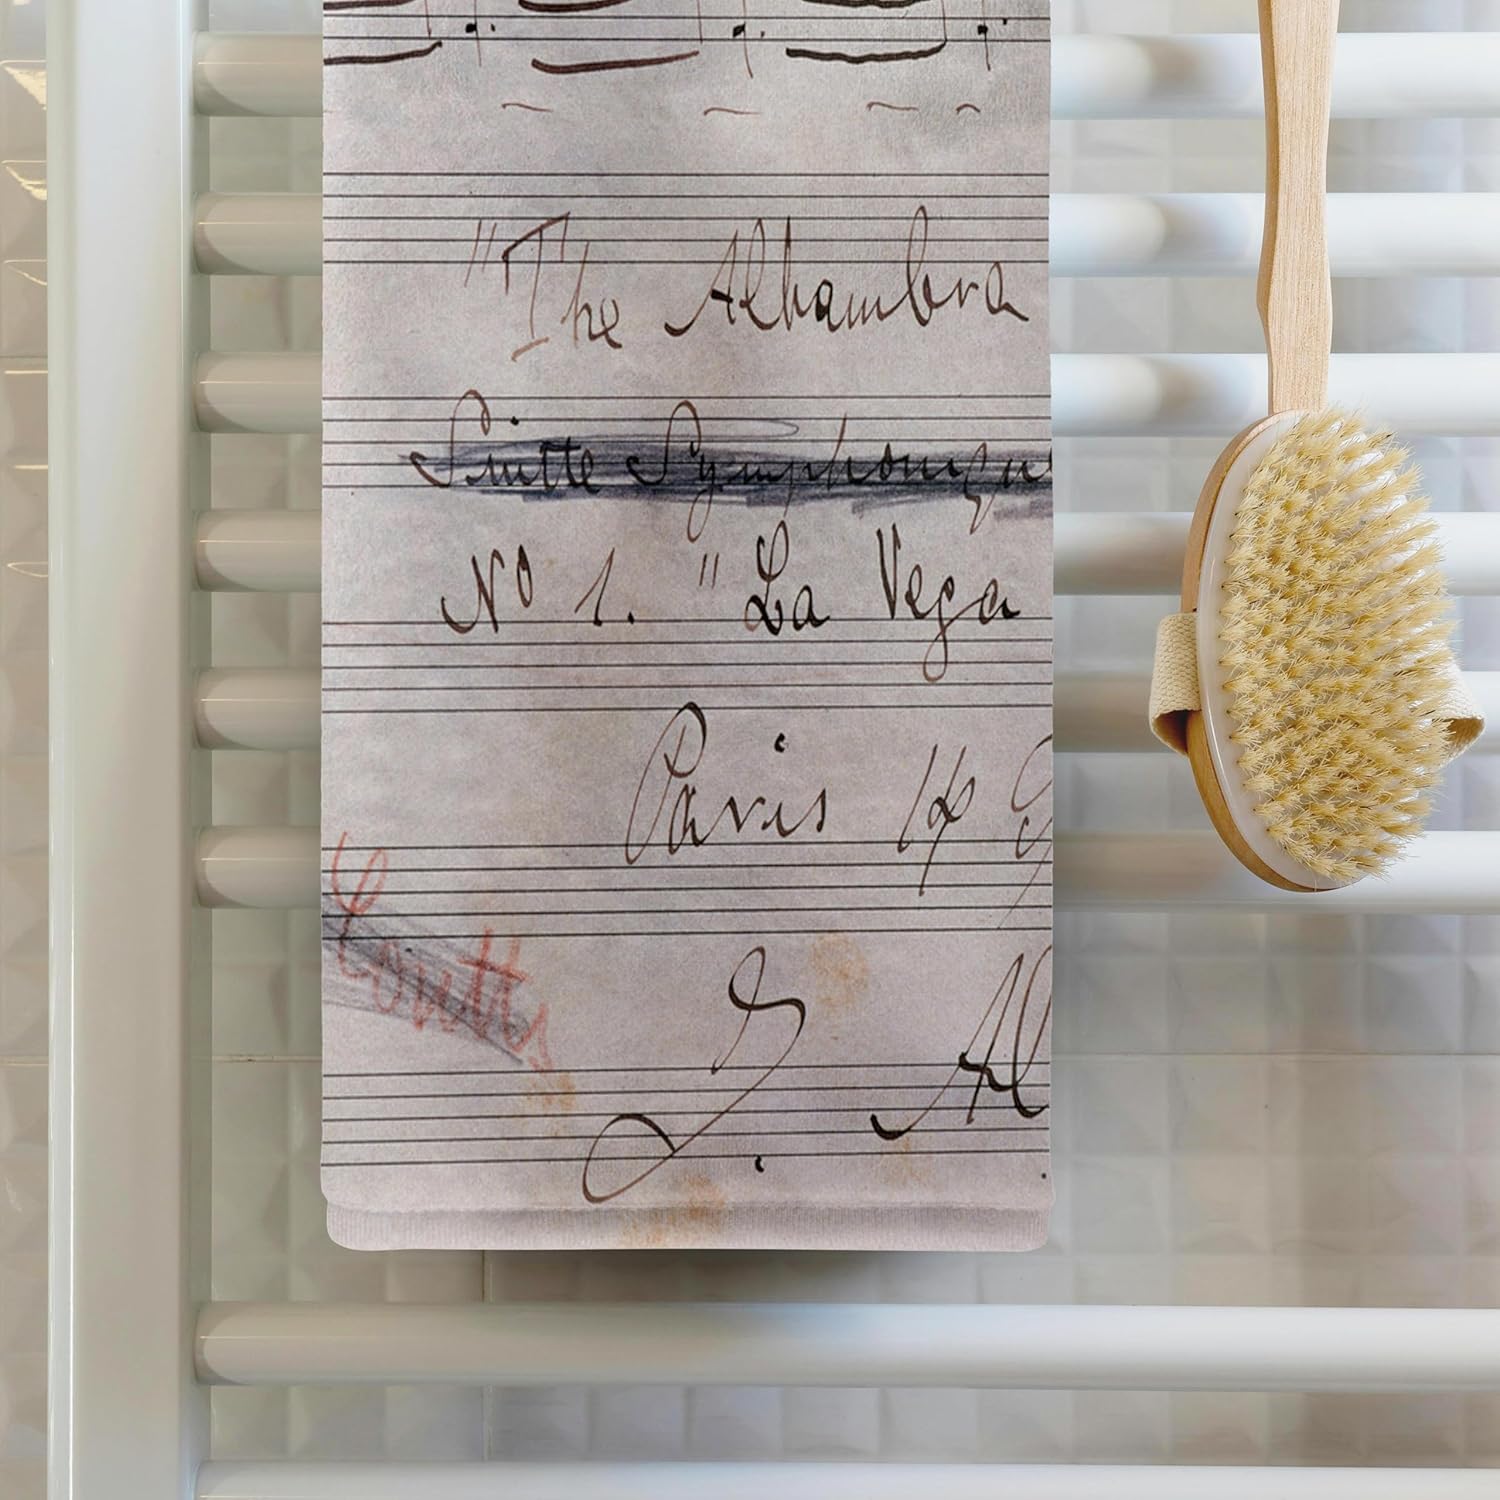 "The Alhambra
Suitte Symphoniqu
No 1. "La Vega
Paris 14
Coutts
I. Al